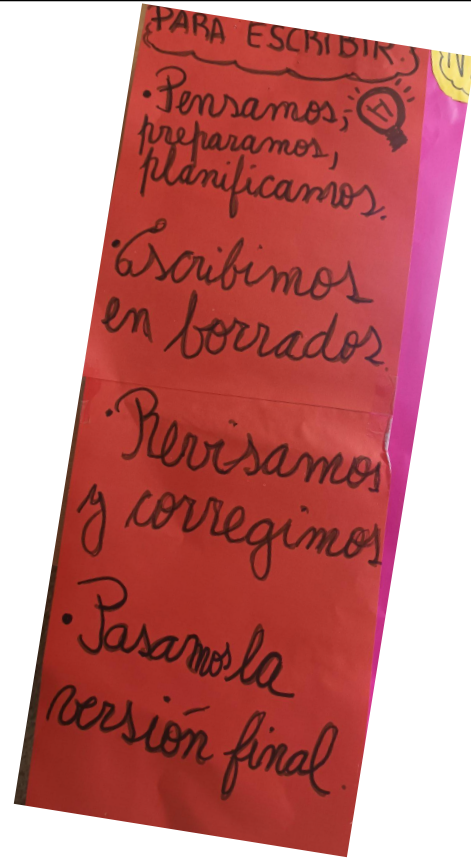 PARA ESCRIBIR.
• Pensamos,
preparamos,
planificamos.
• Escribimos
en borrados.
• Revisamos
y corregimos
• Pasamos la
versión final.